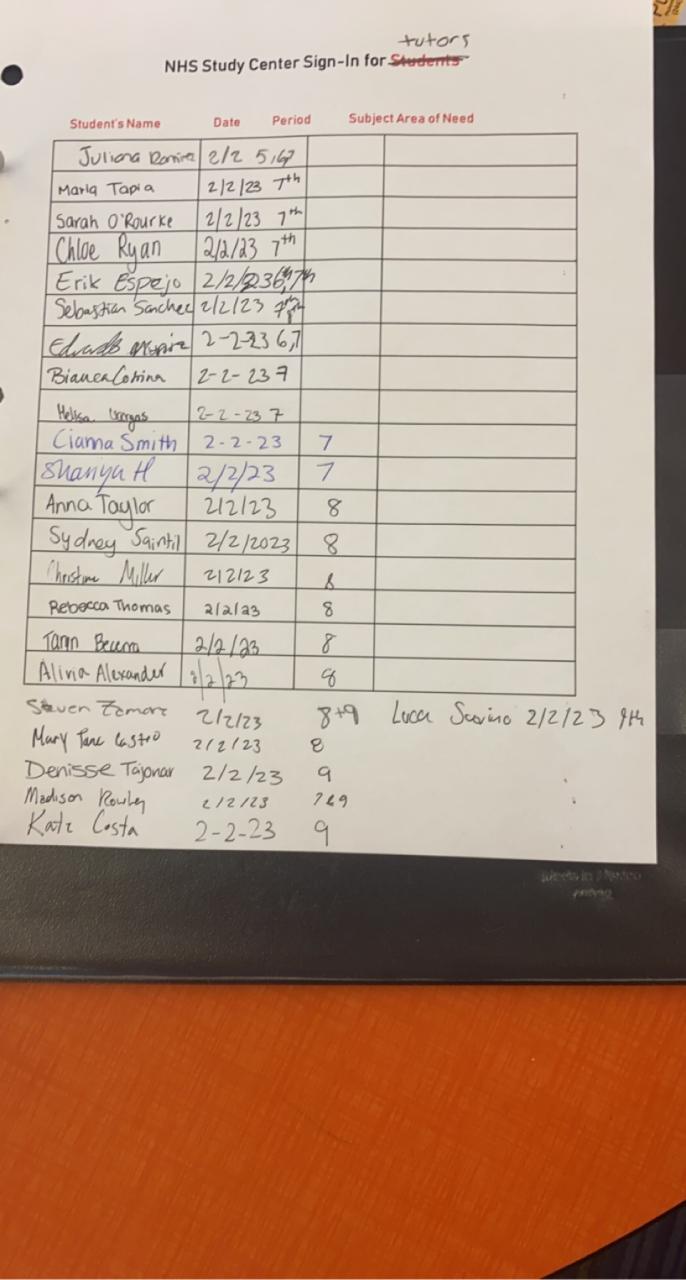 tutors
NHS Study Center Sign-In for Students
Student's Name Date Period Subject Area of Need
Juliana 2/2 5,6,7
Maria Tapia 2/2/23 7th
Sarah O'Rourke 2/2/23 7th
Chloe Ryan 2/2/23 7th
Erik Espejo 2/2/23 6th,7th
Sebastian Sanchez 2/2/23 7th
2-2-23 6,7
Bianca 2-2-23 7
Melissa Vargas 2-2-23 7
Cianna Smith 2-2-23 7
Shaniya H 2/2/23 7
Anna Taylor 2/2/23 8
Sydney Saintil 2/2/2023 8
Christine Miller 2/2/23 8
Rebecca Thomas 2/2/23 8
2/2/23 8
Alivia Alexander 2/2/23 8
Steven 2/2/23 8+9 Luca 2/2/23 9th
Mary Jane Castro 2/2/23 8
Denisse Tajonar 2/2/23 9
Madison Rowley 2/2/23 7&9
Kate Costa 2-2-23 9